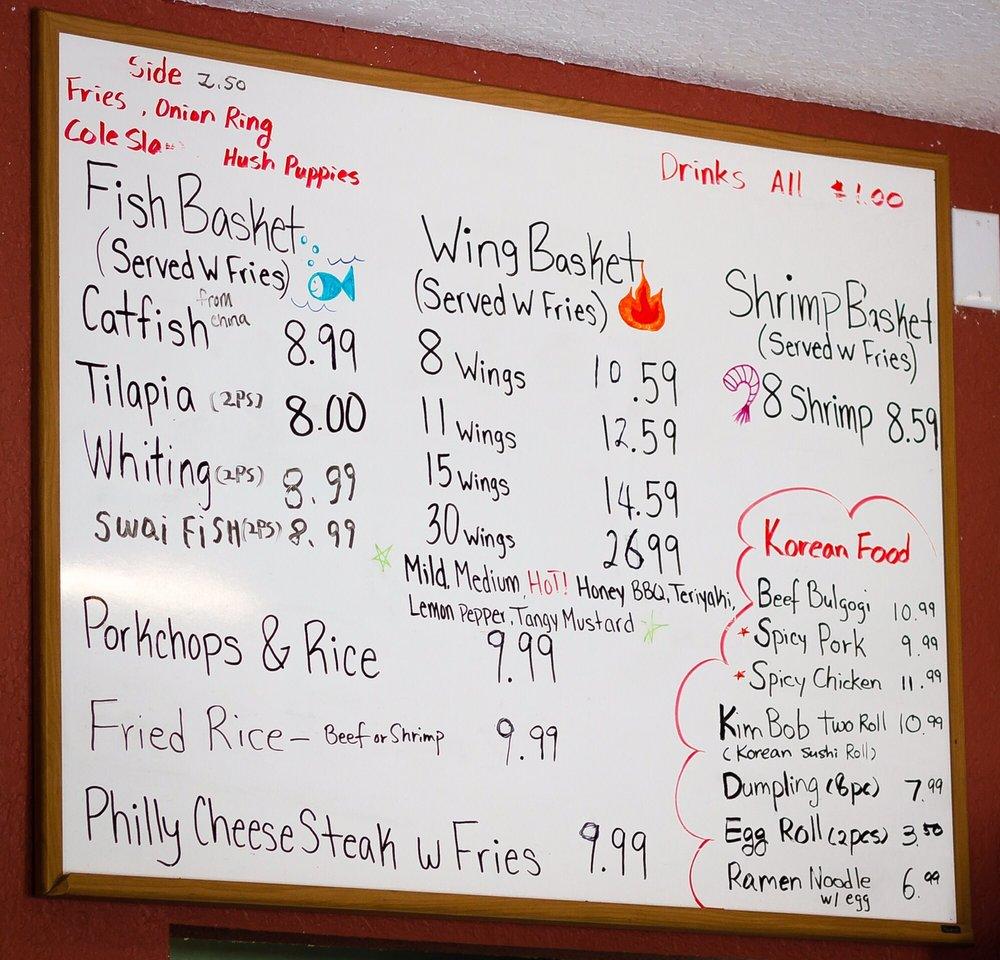 Side 2.50
Fries , Onion Ring
Cole Sla
Hush Puppies
Drinks All $1.00
Fish Basket
(Served W Fries)
Catfish from china 8.99
Tilapia (2PS) 8.00
Whiting (2PS) 8.99
Swai FiSH (2PS) 8.99
Wing Basket
(Served W Fries)
8 Wings 10.59
11 Wings 12.59
15 Wings 14.59
30 Wings 2699
Mild, Medium, HOT! Honey BBQ, Teriyaki,
Lemon Pepper, Tangy Mustard
Shrimp Basket
(Served W Fries)
8 Shrimp 8.59
Porkchops & Rice 9.99
Fried Rice – Beef or Shrimp 9.99
Philly Cheese Steak w Fries 9.99
Korean Food
Beef Bulgogi 10.99
* Spicy Pork 9.99
* Spicy Chicken 11.99
Kim Bob Two Roll 10.99
(Korean Sushi Roll)
Dumpling (8pc) 7.99
Egg Roll (2pcs) 3.50
Ramen Noodle 6.99
w/ egg